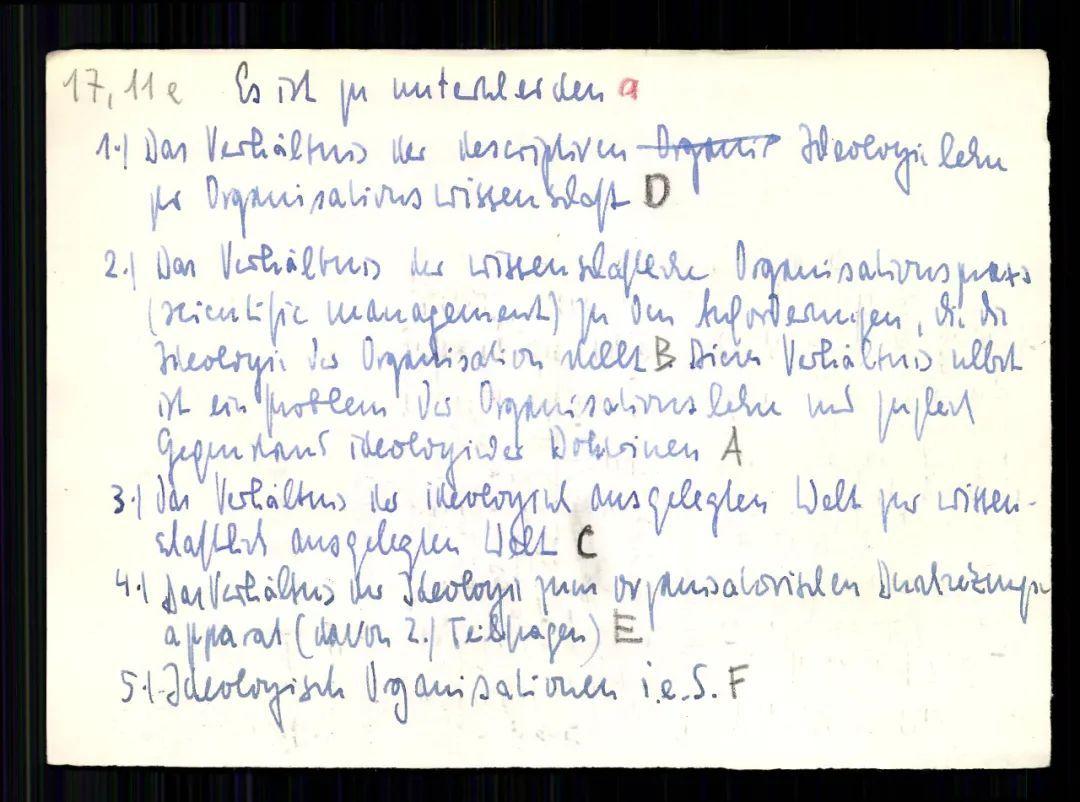 17,11e Es ist zu unterscheiden a
1.) Das Verhältnis der descriptiven Organis Ideologielehre
zur Organisationswissenschaft D
2.) Das Verhältnis der wissenschaftliche Organisationspraxis
(scientific management) zu den Anforderungen, die die
Ideologie der Organisation stellt B Dieses Verhältnis selbst
ist ein Problem der Organisationslehre und zugleich
Gegenstand ideologischer Doktrinen A
3.) Das Verhältnis der ideologisch ausgelegten Welt zur wissen-
schaftlich ausgelegten Welt C
4.) Das Verhältnis der Ideologie zum organisatorischen Durchsetzungs
apparat (davon 2.) Teilfragen) E
5.) Ideologische Organisationen i.e.S. F